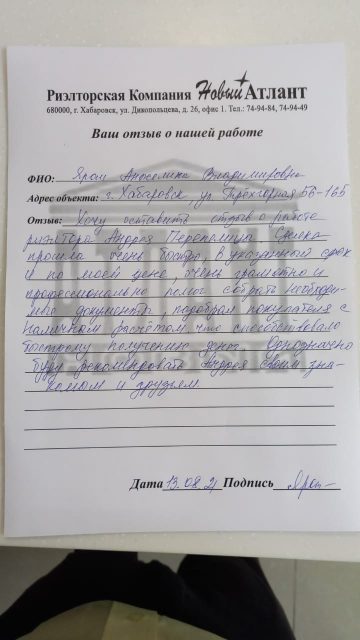 Риэлторская Компания Новый Атлант
680000, г. Хабаровск, ул. Дикопольцева, д. 26, офис 1. Тел.: 74-94-84, 74-94-49
Ваш отзыв о нашей работе
ФИО: Яран Анжелика Владимировна
Адрес объекта: г. Хабаровск, ул. Трёхгорная 56-165
Отзыв: Хочу оставить отзыв о работе
риэлтора Андрея Перепелицы. Сделка
прошла очень быстро, в указанный срок
и по моей цене, очень грамотно и
профессионально помог собрать необходи-
мые документы, подобрал покупателя с
наличным расчётом, что способствовало
быстрому получению денег. Однозначно
буду рекомендовать Андрея своим зна-
комым и друзьям
Дата 13.08.21 Подпись